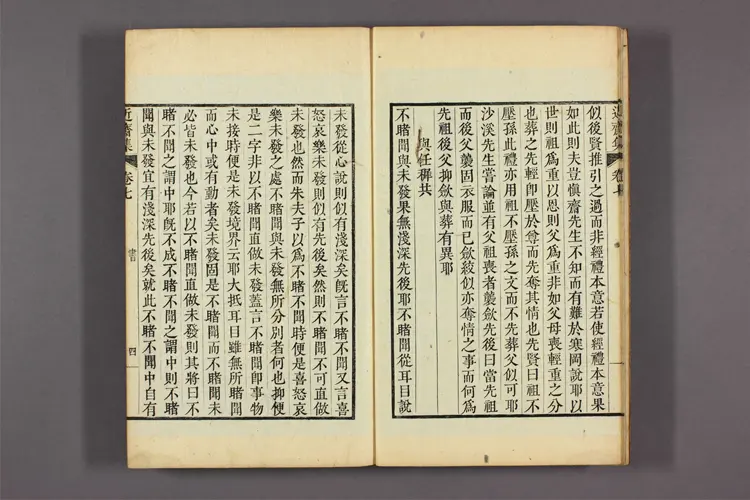 似後賢推引之過而非經禮本意若使經禮本意果
如此則夫豈愼齋先生不知而有難於寒岡說耶以
世則祖爲重以恩則父爲重非如父母喪輕重之分
也葬之先輕卽壓於尊而先奪其情也先賢曰祖不
壓孫此禮亦用祖不壓孫之文而不先葬父似可耶
沙溪先生嘗論並有父祖喪者襲斂先後曰當先祖
而後父襲固示服而已斂絞似亦奪情之事而何爲
先祖後父抑斂與葬有異耶
與任穉共
不睹聞與未發果無淺深先後耶不睹聞從耳目說
未發從心說則似有淺深矣旣言不睹不聞又言喜
怒哀樂未發則似有先後矣然則不睹聞不可直做
未發也然而朱夫子以爲不睹不聞時便是喜怒哀
樂未發之處不睹聞與未發無所分別者何也抑便
是二字非以不睹聞直做未發蓋言不睹聞卽事物
未接時便是未發境界云耶大抵耳目雖無所睹聞
而心中或有動者矣未發固是不睹聞而不睹聞未
必皆未發也今若以不睹聞直做未發則其將曰不
睹不聞之謂中耶旣不成不睹不聞之謂中則不睹
聞與未發宜有淺深先後矣就此不睹不聞中自有
近齋集 卷七 書 四